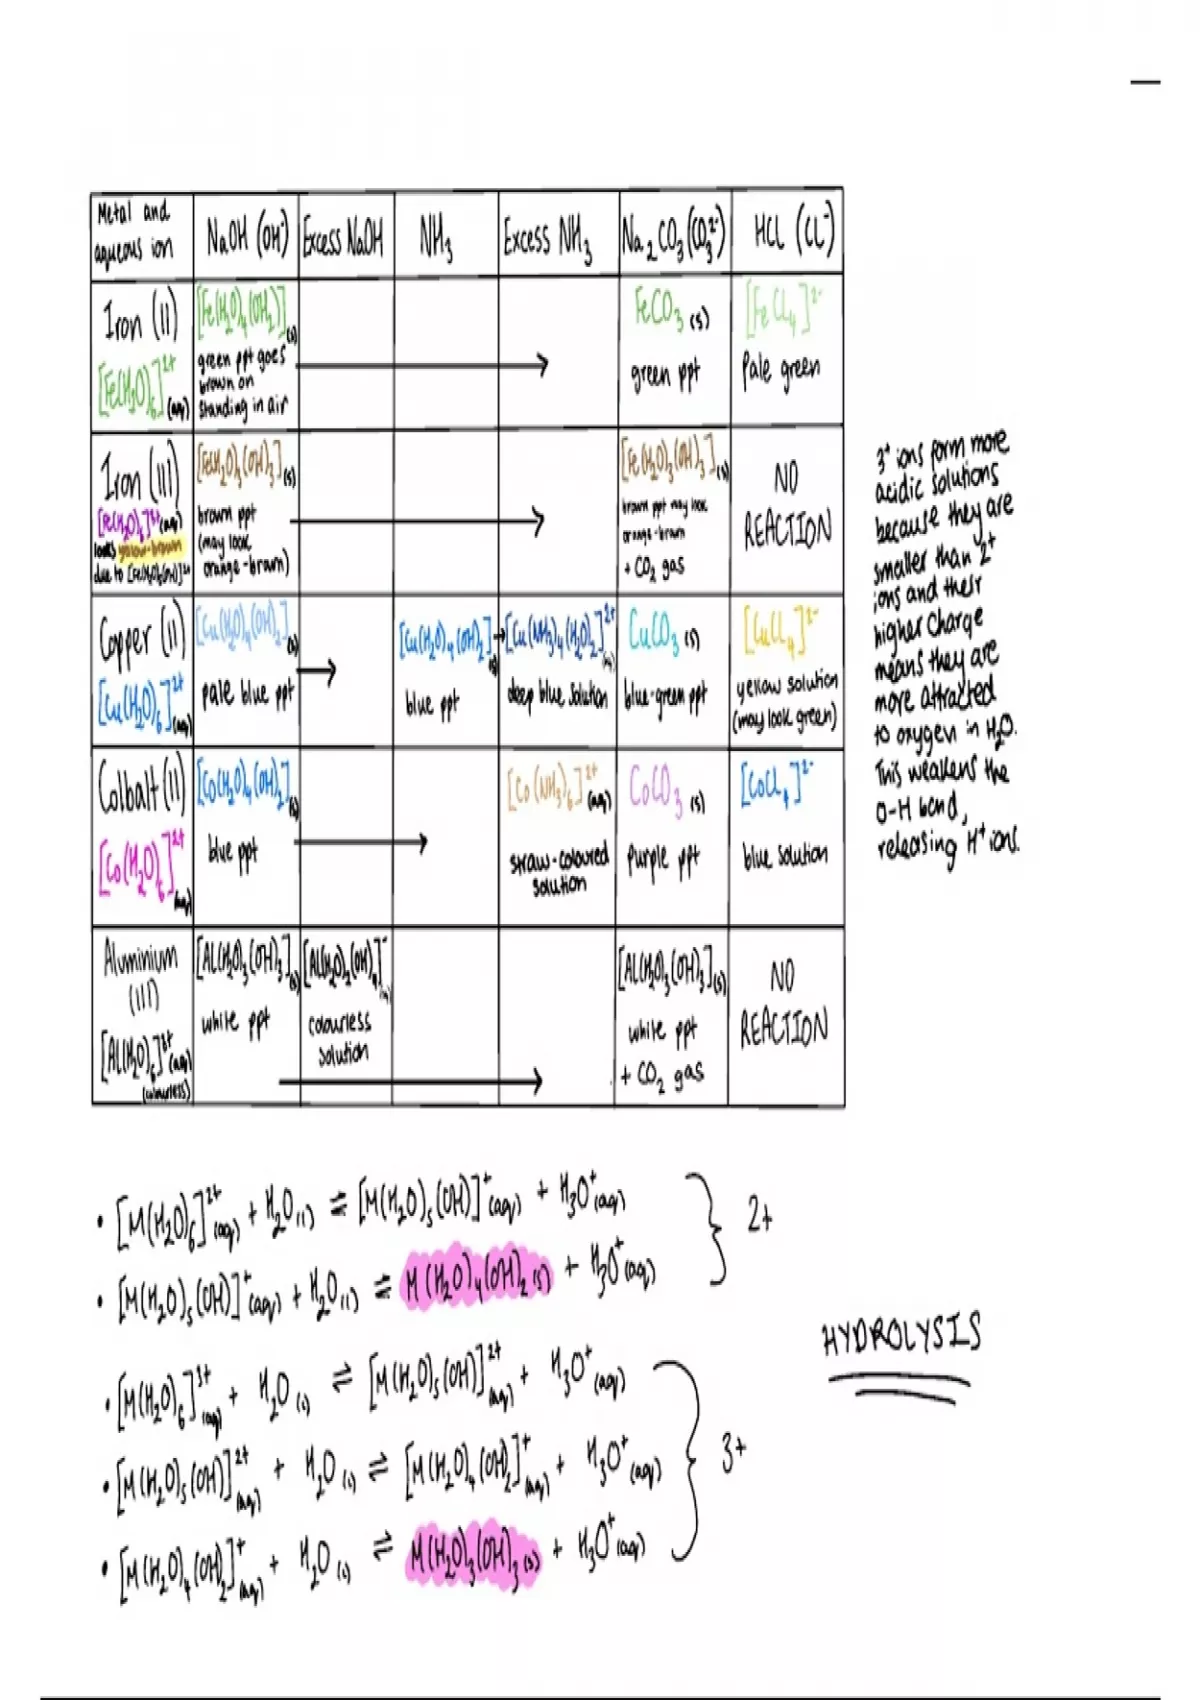 Metal and aqueous ion | NaOH (OH⁻) | Excess NaOH | NH₃ | Excess NH₃ | Na₂CO₃ (CO₃²⁻) | HCl (Cl⁻)
Iron (II)
[Fe(H₂O)₆]²⁺(aq)
[Fe(H₂O)₄(OH)₂](s)
green ppt goes
brown on
standing in air
FeCO₃ (s)
green ppt
[FeCl₄]²⁻
Pale green
Iron (III)
[Fe(H₂O)₆]³⁺(aq)
looks yellow-brown
due to [Fe(H₂O)₅(OH)]²⁺
[Fe(H₂O)₃(OH)₃](s)
brown ppt
(may look
orange-brown)
[Fe(H₂O)₃(OH)₃](s)
brown ppt may look
orange-brown
+ CO₂ gas
NO
REACTION
Copper (II)
[Cu(H₂O)₆]²⁺(aq)
[Cu(H₂O)₄(OH)₂](s)
pale blue ppt
[Cu(H₂O)₄(OH)₂](s)
blue ppt
[Cu(NH₃)₄(H₂O)₂]²⁺(aq)
deep blue solution
CuCO₃ (s)
blue-green ppt
[CuCl₄]²⁻
yellow solution
(may look green)
Colbalt (II)
[Co(H₂O)₆]²⁺(aq)
[Co(H₂O)₄(OH)₂](s)
blue ppt
[Co(NH₃)₆]²⁺(aq)
straw-coloured
solution
CoCO₃ (s)
purple ppt
[CoCl₄]²⁻
blue solution
Aluminium
(III)
[Al(H₂O)₆]³⁺(aq)
(colourless)
[Al(H₂O)₃(OH)₃](s)
white ppt
[Al(H₂O)₂(OH)₄]⁻(aq)
colourless
solution
[Al(H₂O)₃(OH)₃](s)
white ppt
+ CO₂ gas
NO
REACTION
3⁺ ions form more
acidic solutions
because they are
smaller than 2⁺
ions and their
higher charge
means they are
more attracted
to oxygen in H₂O.
This weakens the
O-H bond,
releasing H⁺ ions.
• [M(H₂O)₆]²⁺(aq) + H₂O(l) ⇌ [M(H₂O)₅(OH)]⁺(aq) + H₃O⁺(aq)
2+
• [M(H₂O)₅(OH)]⁺(aq) + H₂O(l) ⇌ M(H₂O)₄(OH)₂(s) + H₃O⁺(aq)
HYDROLYSIS
• [M(H₂O)₆]³⁺(aq) + H₂O(l) ⇌ [M(H₂O)₅(OH)]²⁺(aq) + H₃O⁺(aq)
• [M(H₂O)₅(OH)]²⁺(aq) + H₂O(l) ⇌ [M(H₂O)₄(OH)₂]⁺(aq) + H₃O⁺(aq)
3+
• [M(H₂O)₄(OH)₂]⁺(aq) + H₂O(l) ⇌ M(H₂O)₃(OH)₃(s) + H₃O⁺(aq)